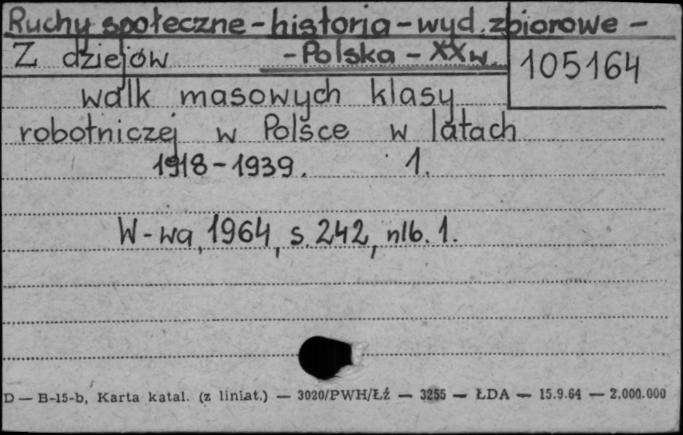 Ruchy społeczne - historia - wyd. zbiorowe -
Z dziejów - Polska - XX w.
105164
walk masowych klasy
robotniczej w Polsce w latach
1918-1939. 1.
W-wa, 1964, s. 242, nlb. 1.
D — B-15-b, Karta katal. (z liniat.) — 3020/PWH/Łź — 3255 — ŁDA — 15.9.64 — 2.000.000